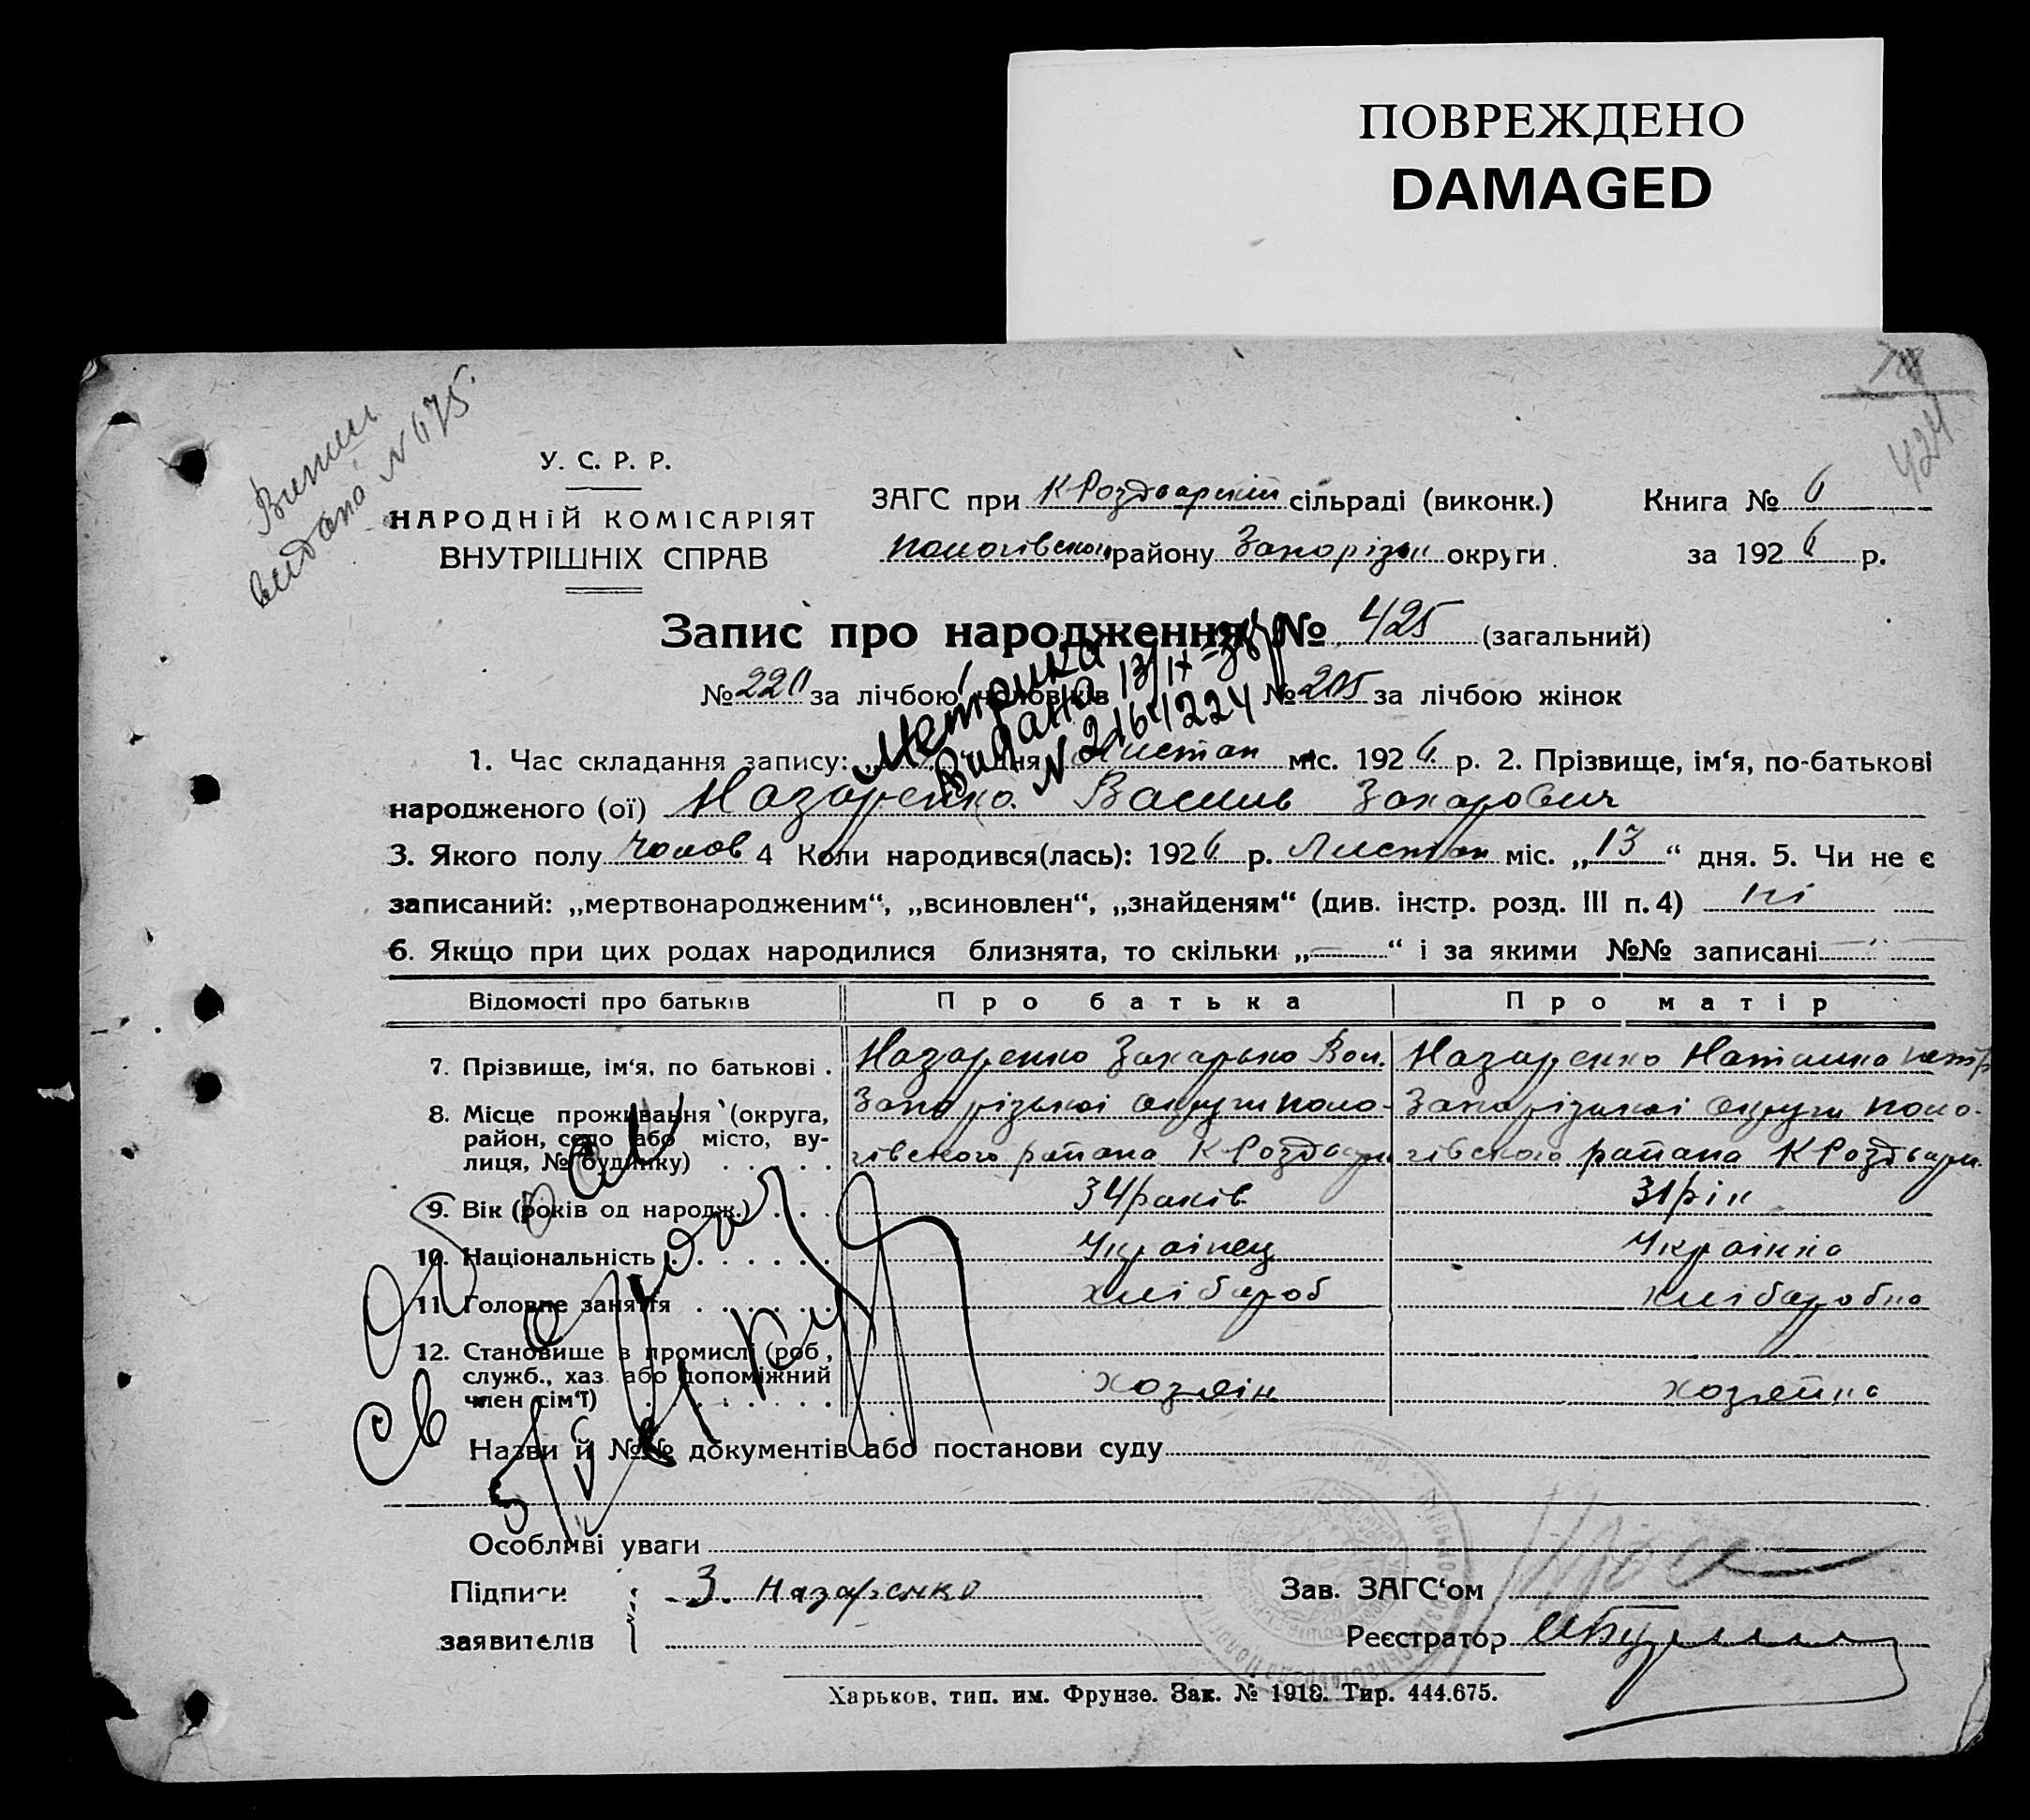 ПОВРЕЖДЕНО
DAMAGED
424
видана N 475
У. С. Р. Р.
НАРОДНІЙ КОМІСАРІЯТ
ВНУТРІШНІХ СПРАВ
ЗАГС при К Роздварскій сільраді (виконк.) Книга № 6
Пологівском району Запорізьк округи за 1926 р.
Запис про народження № 425 (загальний)
№ 220 за лічбою чоловіків № 205 за лічбою жінок
Метрика
видана 13/IX-38
N 2164224
1. Час складання запису: „ дня Листап міс. 1926 р. 2. Прізвище, ім‘я, по-батькові
народженого (ої) Назаренко Василь Захарович
3. Якого полу чолов 4 Коли народився(лась): 1926 р. Листап міс. „13“ дня. 5. Чи не є
записаний: „мертвонародженим“, „всиновлен“, „знайденям“ (див. інстр. розд. III п. 4) ні
6. Якщо при цих родах народилися близнята, то скільки „—“ і за якими №№ записані
Відомості про батьків Про батька Про матір
7. Прізвище, ім‘я, по батькові . Назаренко Захарько Вас. Назаренко Наталка петр
8. Місце проживання (округа, Запорізькоі округи поло- Запорізькоі округи поло-
район, село або місто, ву-
лиця, № будинку) . . . . . гівского района К Роздвари гівского района К Роздвари
9. Вік (років од народж.) . . . 34 раків 31 рік
10. Національність . . . . . . . Украінец Украінка
11. Головне заняття . . . . . . хлібароб хлібаробка
12. Становище в промислі (роб,
служб., хаз. або допоміжний
член сім‘ї) . . . . . . хозяін хозяйка
Назви й №№ документів або постанови суду
Особливі уваги
Підписи З. Назаренко Зав. ЗАГС‘ом
заявителів Реєстратор
Харьков, тип. им. Фрунзе. Зак. № 1918. Тир. 444.675.